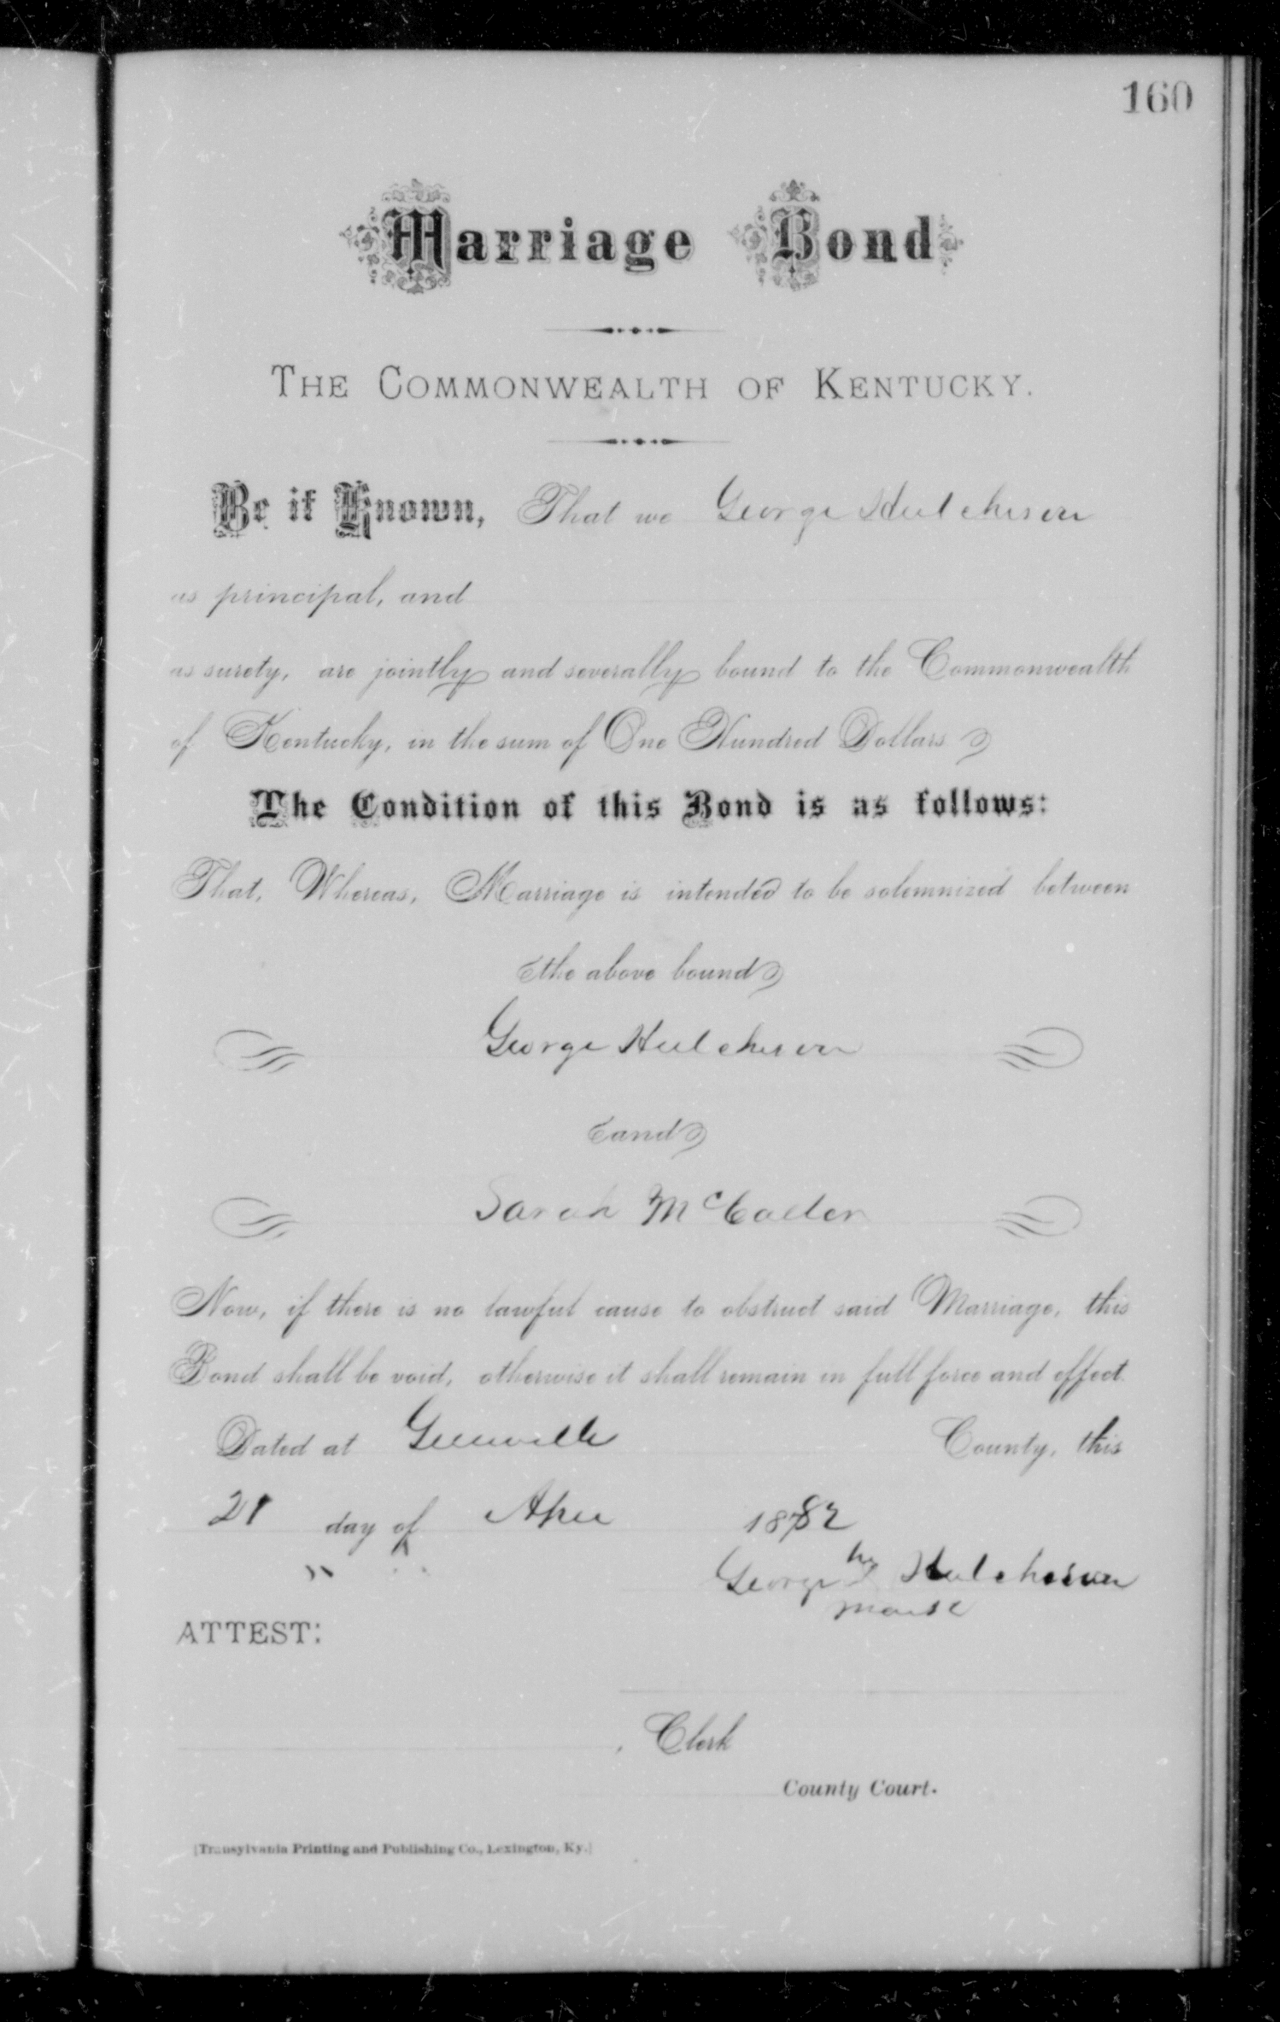 160
Marriage Bond
THE COMMONWEALTH OF KENTUCKY.
Be it Known, That we George Hutcherson
as principal, and
as surety, are jointly and severally bound to the Commonwealth
of Kentucky, in the sum of One Hundred Dollars
The Condition of this Bond is as follows:
That, Whereas, Marriage is intended to be solemnized between
the above bound
George Hutcherson
and
Sarah
Now, if there is no lawful cause to obstruct said Marriage, this
Bond shall be void, otherwise it shall remain in full force and effect.
Dated at Greenville County, this
21 day of 1882
George Hutcherson
mark
ATTEST:
, Clerk
County Court.
[Transylvania Printing and Publishing Co., Lexington, Ky.]